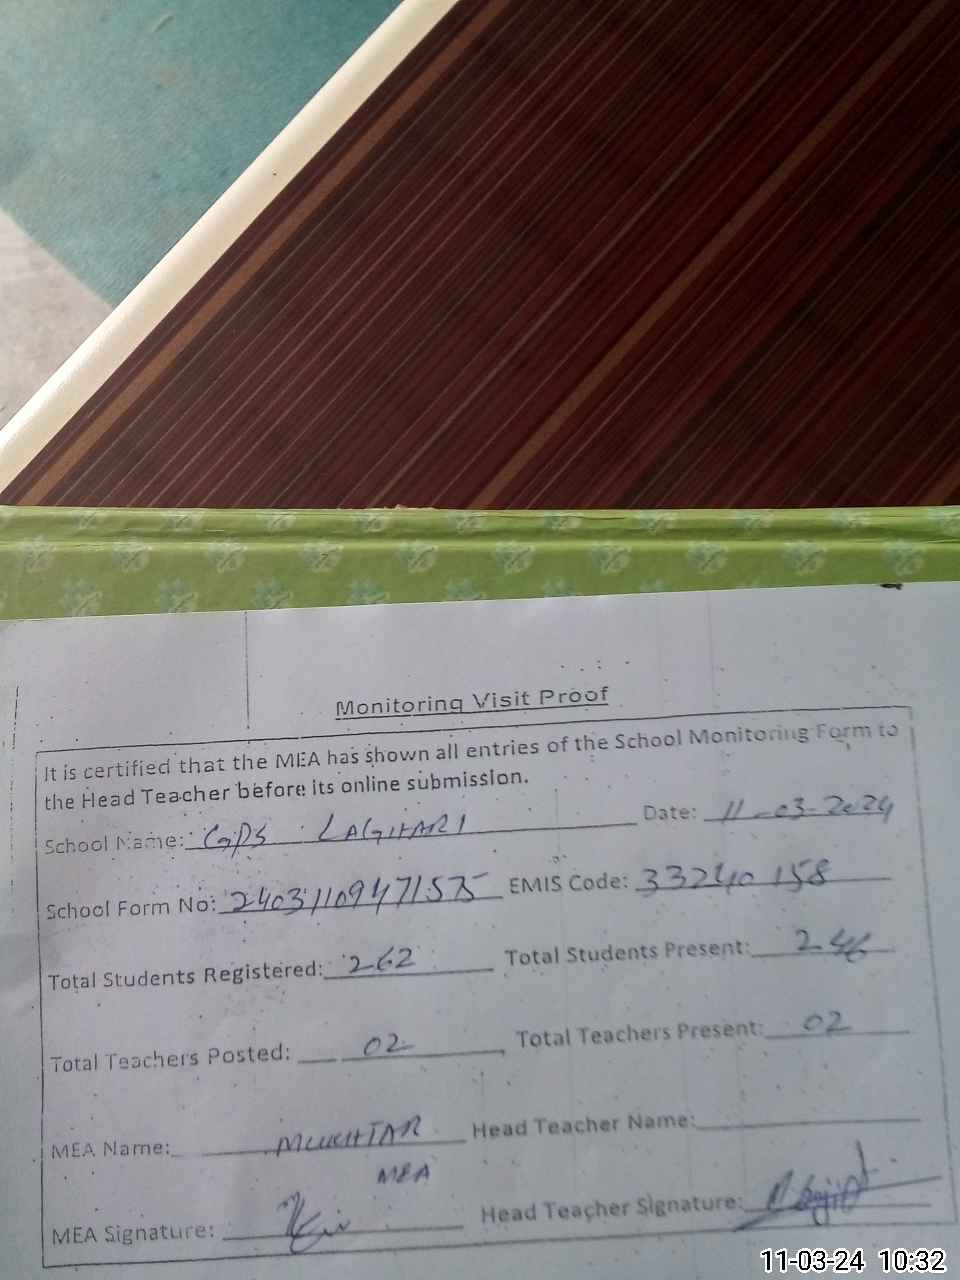 Monitoring Visit Proof
It is certified that the MEA has shown all entries of the School Monitoring Form to
the Head Teacher before its online submission.
School Name: GPS LAGHARI Date: 11-03-2024
School Form No: 24031109471575 EMIS Code: 33240158
Total Students Registered: 262 Total Students Present: 246
Total Teachers Posted: 02 Total Teachers Present: 02
MEA Name: MUKHTAR Head Teacher Name:
MEA
MEA Signature: Head Teacher Signature:
11-03-24 10:32